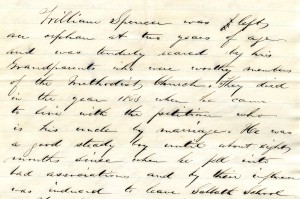 William Spencer was left
an orphan at two years of age
and was tenderly reared by his
Grandparents who were worthy members
of the Methodist Church. They died
in the year 1858 when he came
to live with the petitioner who
is his uncle by marriage. He was
a good steady boy until about eight
months since when he fell into
bad associations and by their influence
was induced to leave Sabbath School